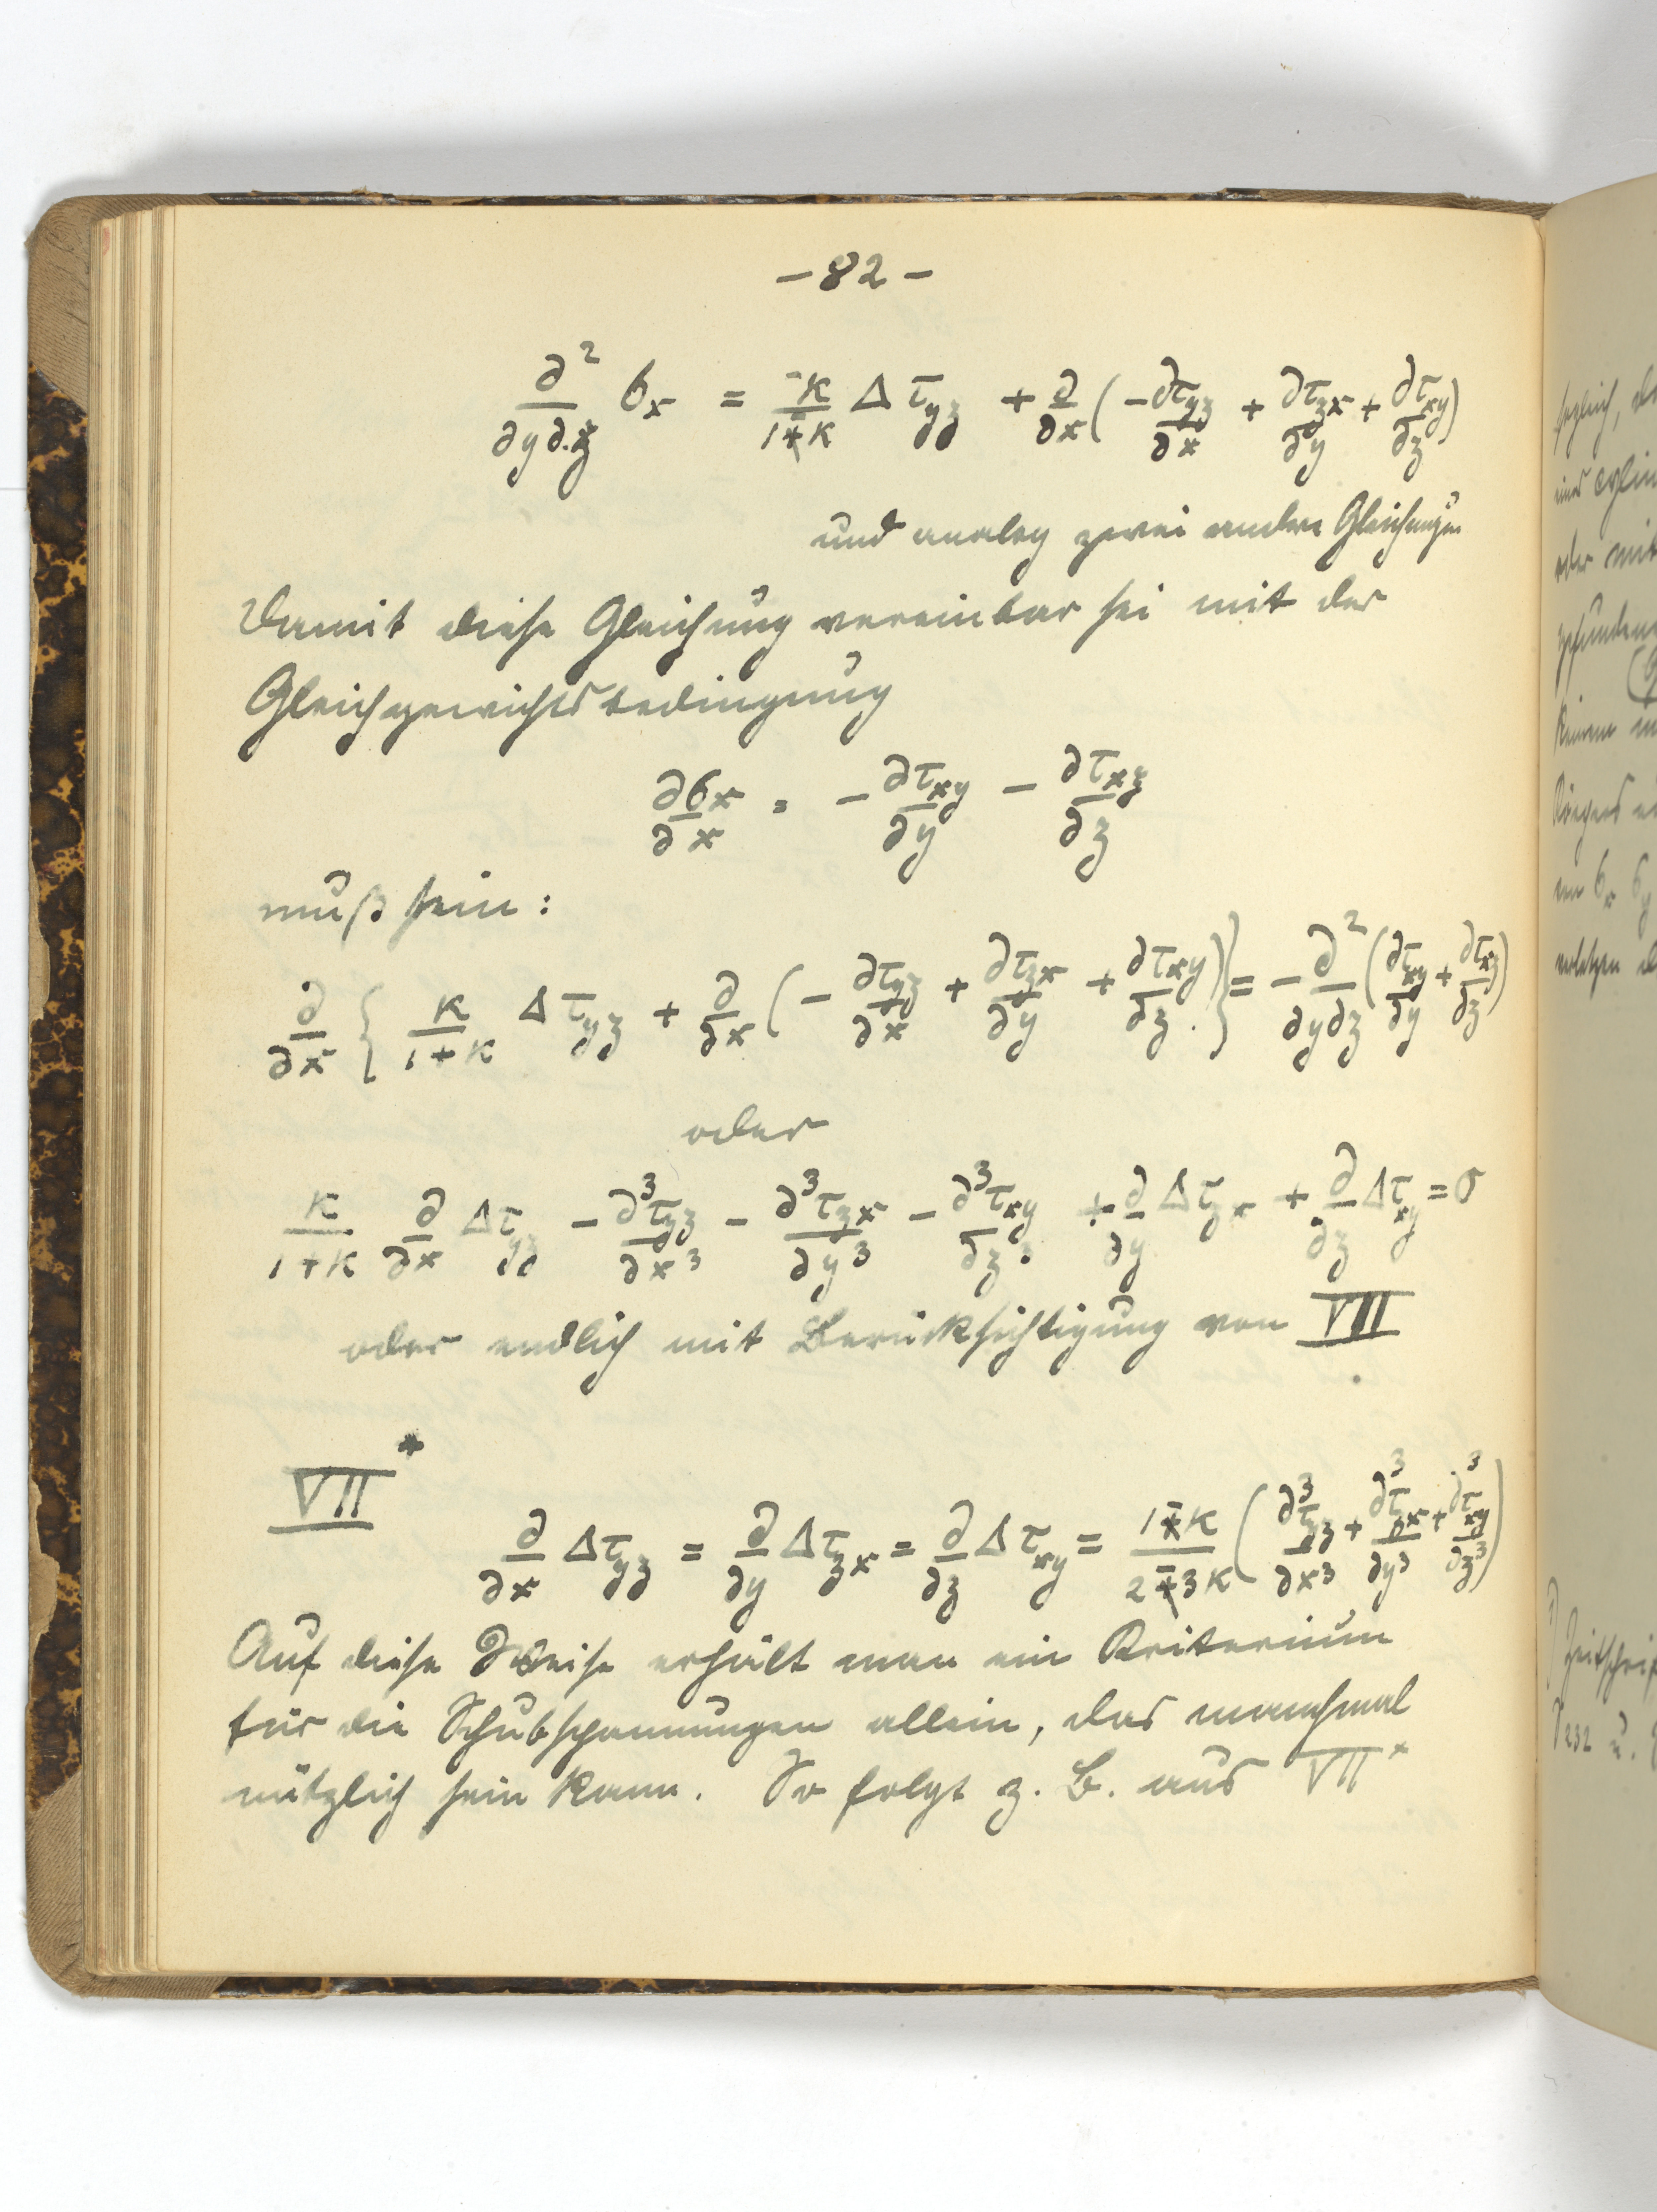 – 82 –
∂²/∂y∂z σx = -κ/1-κ Δ τyz + ∂/∂x ( - ∂τyz/∂x + ∂τzx/∂y + ∂τxy/∂z )
und analog zwei andere Gleichungen
Damit diese Gleichung vereinbar sei mit der
Gleichgewichtsbedingung
∂σx/∂x = - ∂τxy/∂y - ∂τxz/∂z
muß sein:
∂/∂x { κ/1+κ Δ τyz + ∂/∂x ( - ∂τyz/∂x + ∂τzx/∂y + ∂τxy/∂z ) } = - ∂²/∂y∂z ( ∂τxy/∂y + ∂τxz/∂z )
oder
κ/1+κ ∂/∂x Δτyz - ∂³τyz/∂x³ - ∂³τzx/∂y³ - ∂³τxy/∂z³ + ∂/∂y Δτzx + ∂/∂z Δτxy = 0
oder endlich mit Berücksichtigung von VII
VII*
∂/∂x Δτyz = ∂/∂y Δτzx = ∂/∂z Δτxy = 1-κ/2-3κ ( ∂³τyz/∂x³ + ∂³τzx/∂y³ + ∂³τxy/∂z³ )
Auf diese Weise erhält man ein Kriterium
für die Schubspannungen allein, das manchmal
nützlich sein kann. So folgt z. B. aus VII*
oder mit
Zeitschrif
232 u.